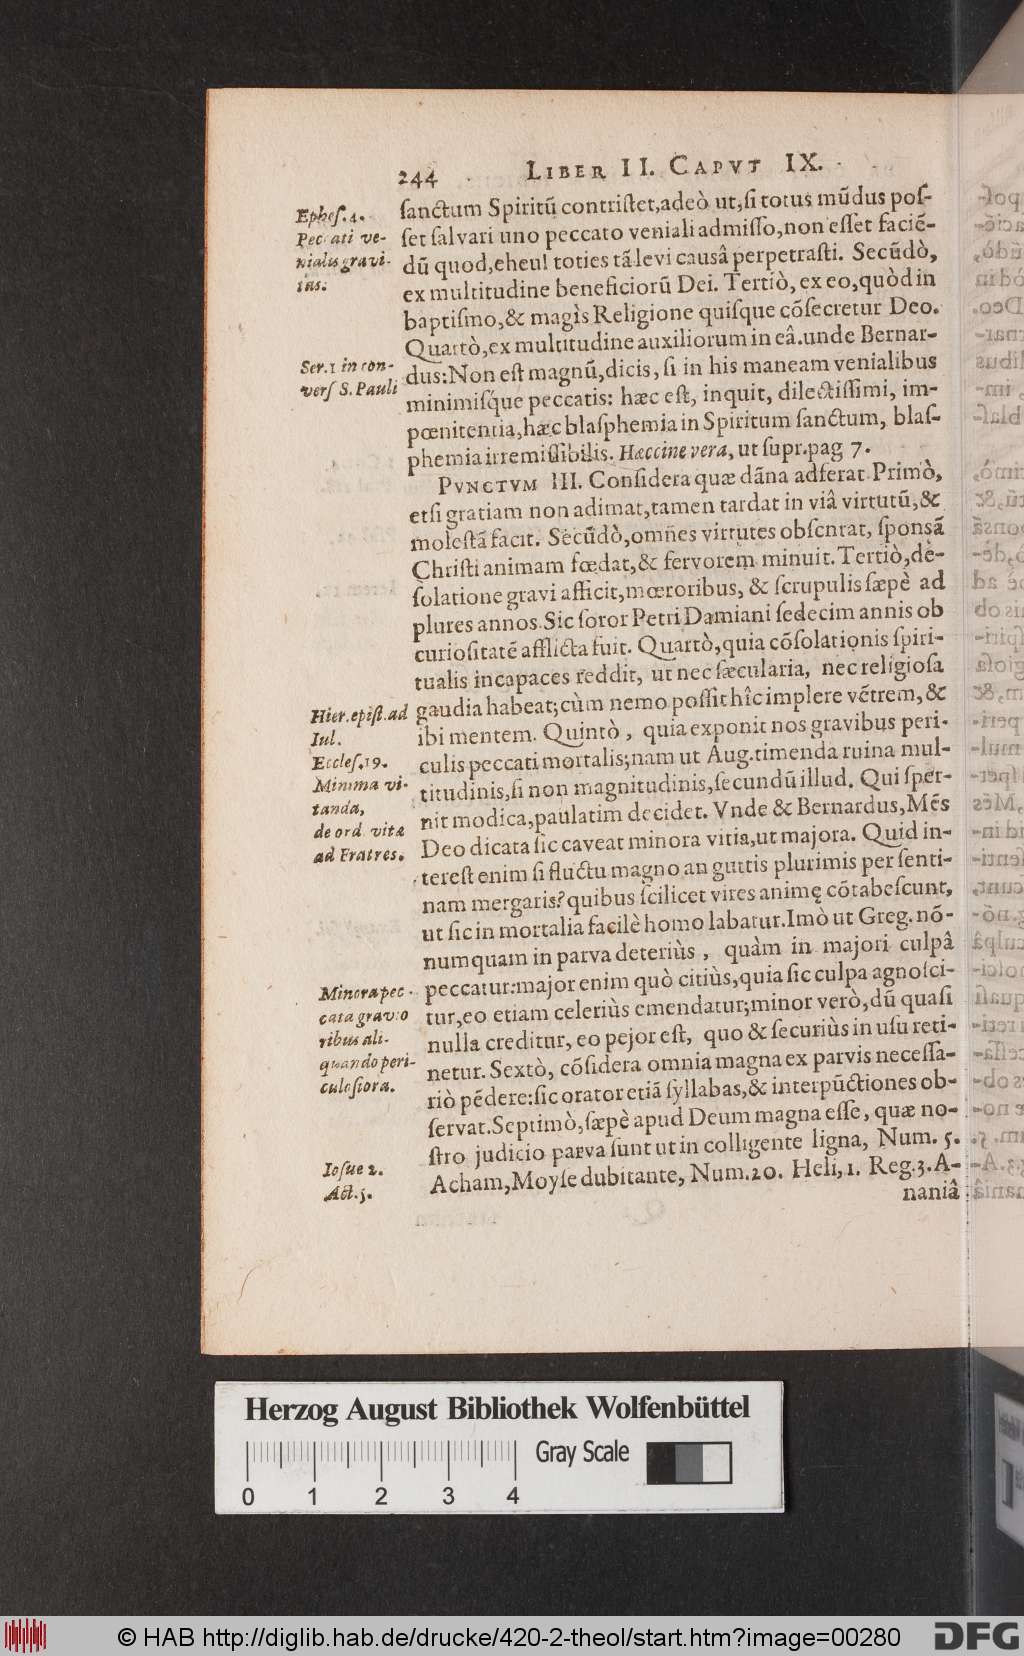 244 LIBER II. CAPVT IX.
Ephes. 4.
Peccati ve-
nialis gravi-
tas.
Ser. 1 in con-
vers S. Pauli
Hier. epist. ad
Iul.
Eccles. 19.
Minima vi-
tanda,
de ord vitæ
ad Fratres.
Minora pec-
cata gravio
ribus ali-
quando peri-
culosiora.
Iosue 2.
Act. 5.
ſanctum Spiritū contriſtet, adeò ut, ſi totus mūdus poſ-
ſet ſalvari uno peccato veniali admiſſo, non eſſet faciē-
dū quod, eheu! toties tā levi causâ perpetraſti. Secūdò,
ex multitudine beneficiorū Dei. Tertiò, ex eo, quòd in
baptiſmo, & magìs Religione quiſque cōſecretur Deo.
Quartò, ex multitudine auxiliorum in eâ. unde Bernar-
dus: Non eſt magnū, dicis, ſi in his maneam venialibus
minimiſq́ue peccatis: hæc eſt, inquit, dilectiſſimi, im-
pœnitentia, hæc blaſphemia in Spiritum ſanctum, blaſ-
phemia irremiſſibilis. Hæccine vera, ut ſupr. pag 7.
PVNCTVM III. Conſidera quæ dāna adferat. Primò,
etſi gratiam non adimat, tamen tardat in viâ virtutū, &
moleſtā facit. Secūdò, omēs virtutes obſcurat, ſponsā
Chriſti animam fœdat, & fervorem minuit. Tertiò, dè-
ſolatione gravi afficit, mœroribus, & ſcrupulis ſæpè ad
plures annos. Sic ſoror Petri Damiani ſedecim annis ob
curioſitatē afflicta fuit. Quartò, quia cōſolationis ſpiri-
tualis incapaces reddit, ut nec ſæcularia, nec religioſa
gaudia habeat; cùm nemo poſſit hîc implere vētrem, &
ibi mentem. Quintò, quia exponit nos gravibus peri-
culis peccati mortalis; nam ut Aug. timenda ruina mul-
titudinis, ſi non magnitudinis, ſecundū illud. Qui ſper-
nit modica, paulatim decidet. Vnde & Bernardus, Mēs
Deo dicata ſic caveat minora vitia, ut majora. Quid in-
tereſt enim ſi fluctu magno an guttis plurimis per ſenti-
nam mergaris? quibus ſcilicet vires animę cōtabeſcunt,
ut ſic in mortalia facilè homo labatur. Imò ut Greg. nō-
numquam in parva deteriùs, quàm in majori culpâ
peccatur: major enim quò citiùs, quia ſic culpa agnoſci-
tur, eo etiam celeriùs emendatur; minor verò, dū quaſi
nulla creditur, eo pejor eſt, quo & ſecuriùs in uſu reti-
netur. Sextò, cōſidera omnia magna ex parvis neceſſa-
riò pēdere: ſic orator etiā ſyllabas, & interpūctiones ob-
ſervat. Septimò, ſæpè apud Deum magna eſſe, quæ no-
ſtro judicio parva ſunt ut in colligente ligna, Num. 5.
Acham, Moyſe dubitante, Num. 20. Heli, 1. Reg. 3. A-
naniâ
Herzog August Bibliothek Wolfenbüttel
0 1 2 3 4
Gray Scale
© HAB http://diglib.hab.de/drucke/420-2-theol/start.htm?image=00280
DFG